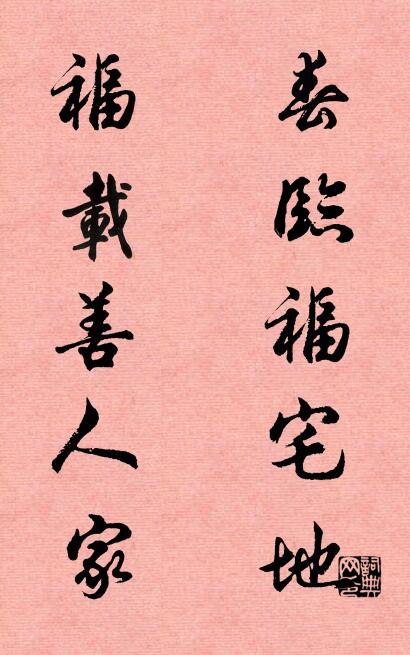 春臨福宅地
福載善人家
詞典網